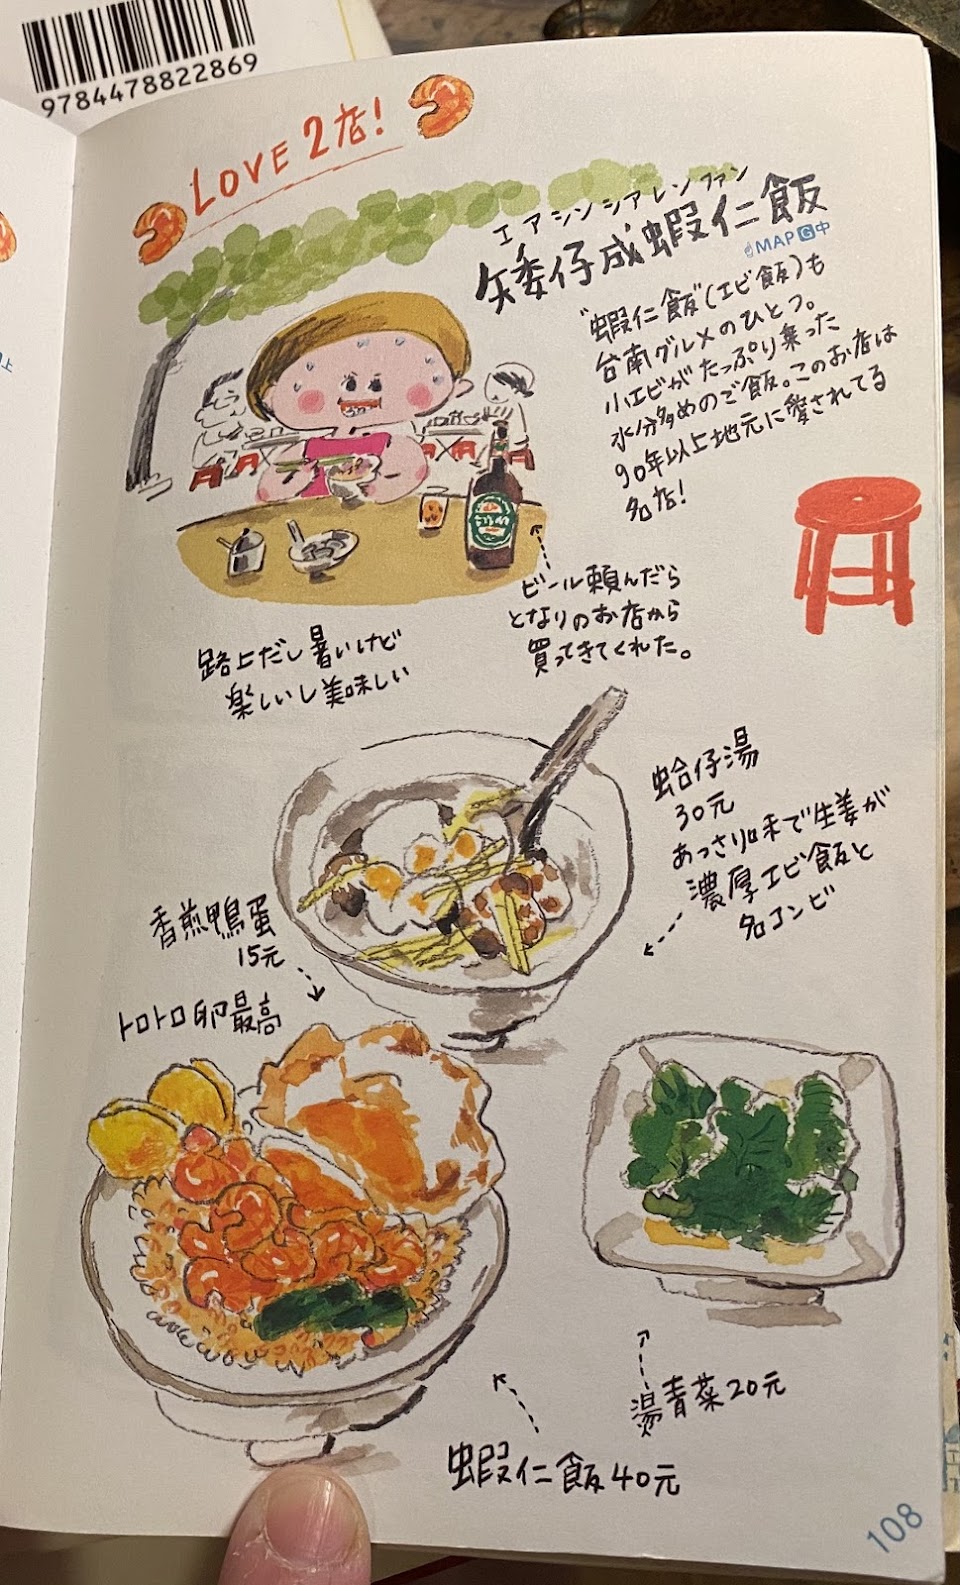 9784478822869
LOVE 2店!
エアシンシアレンファン
矮仔成蝦仁飯
MAP G 中
"蝦仁飯"(エビ飯)も
台南グルメのひとつ。
小エビがたっぷり乗った
水分多めのご飯。このお店は
90年以上地元に愛されてる
名店!
ビール頼んだら
となりのお店から
買ってきてくれた。
路上だし暑いけど
楽しいし美味しい
蛤仔湯
30元
あっさり味で生姜が
濃厚エビ飯と
名コンビ
香煎鴨蛋
15元
トロトロ卵最高
燙青菜20元
蝦仁飯40元
108